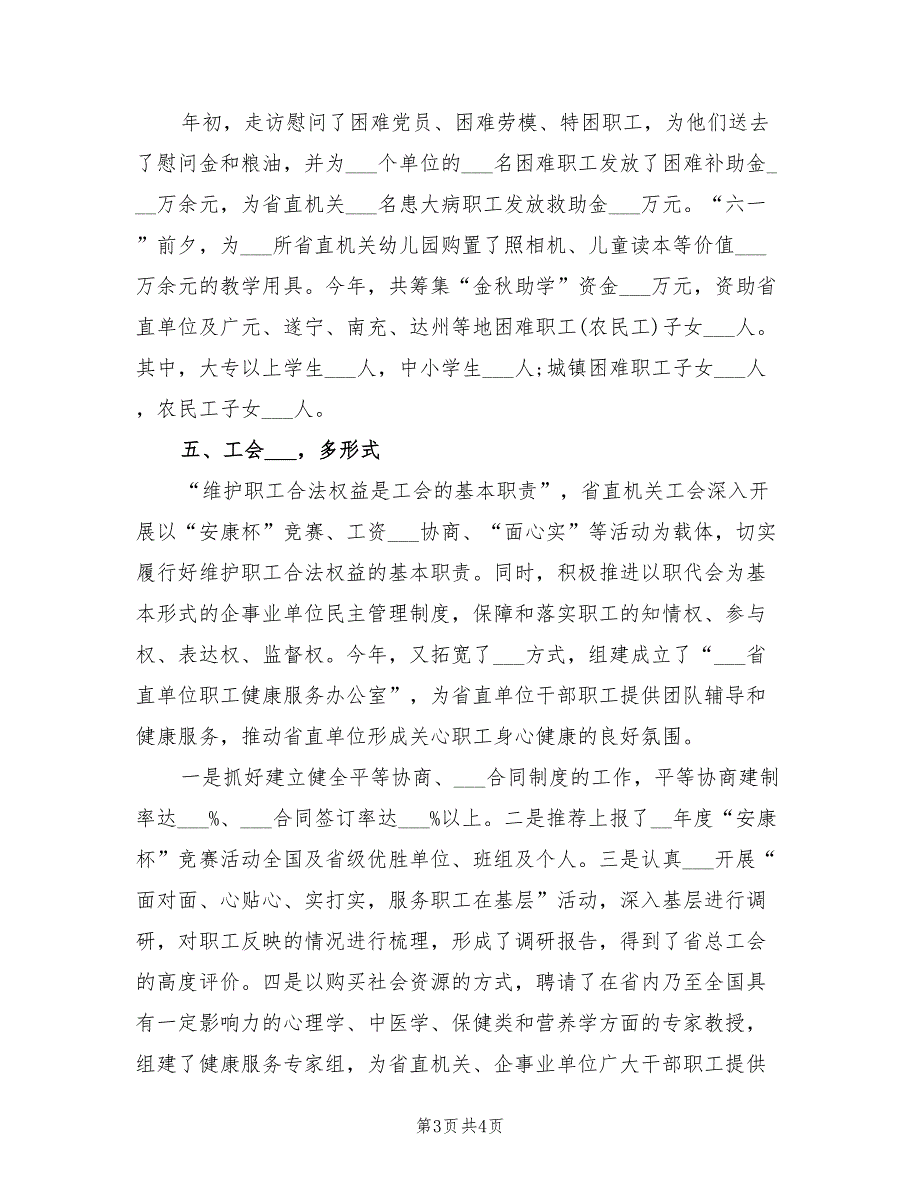 年初，走访慰问了困难党员、困难劳模、特困职工，为他们送去
了慰问金和粮油，并为___个单位的___名困难职工发放了困难补助金_
__万余元，为省直机关___名患大病职工发放救助金___万元。“六一
”前夕，为___所省直机关幼儿园购置了照相机、儿童读本等价值___
万余元的教学用具。今年，共筹集“金秋助学”资金___万元，资助省
直单位及广元、遂宁、南充、达州等地困难职工(农民工)子女___人。
其中，大专以上学生___人，中小学生___人;城镇困难职工子女___人
，农民工子女___人。
五、工会___，多形式
“维护职工合法权益是工会的基本职责”，省直机关工会深入开
展以“安康杯”竞赛、工资___协商、“面心实”等活动为载体，切实
履行好维护职工合法权益的基本职责。同时，积极推进以职代会为基
本形式的企事业单位民主管理制度，保障和落实职工的知情权、参与
权、表达权、监督权。今年，又拓宽了___方式，组建成立了“___省
直单位职工健康服务办公室”，为省直单位干部职工提供团队辅导和
健康服务，推动省直单位形成关心职工身心健康的良好氛围。
一是抓好建立健全平等协商、___合同制度的工作，平等协商建制
率达___%、___合同签订率达___%以上。二是推荐上报了__年度“安康
杯”竞赛活动全国及省级优胜单位、班组及个人。三是认真___开展“
面对面、心贴心、实打实，服务职工在基层”活动，深入基层进行调
研，对职工反映的情况进行梳理，形成了调研报告，得到了省总工会
的高度评价。四是以购买社会资源的方式，聘请了在省内乃至全国具
有一定影响力的心理学、中医学、保健类和营养学方面的专家教授，
组建了健康服务专家组，为省直机关、企事业单位广大干部职工提供
第3页共4页